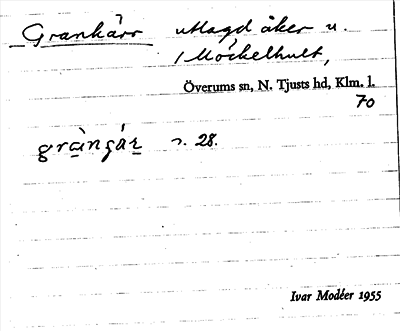 Grankärr utlagd åker u.
Möckelhult,
Överums sn, N. Tjusts hd, Klm. l.
70
28.
Ivar Modéer 1955